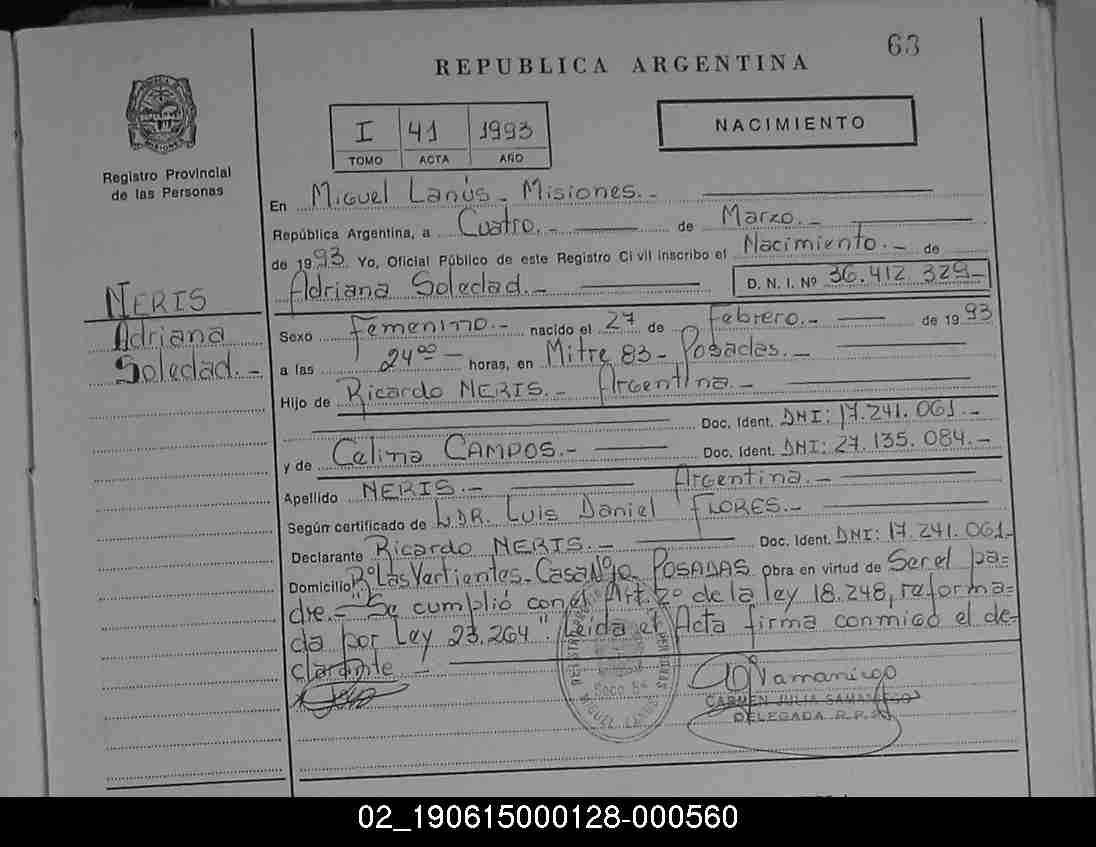 63
REPUBLICA ARGENTINA
I 41 1993
TOMO ACTA AÑO
NACIMIENTO
Registro Provincial
de las Personas
En Miguel Lanús - Misiones.-
República Argentina, a Cuatro.- de Marzo.-
de 1993 Yo, Oficial Público de este Registro Civil inscribo el Nacimiento.- de
Adriana Soledad.- D. N. I. Nº 36.412.329-
NERIS
Adriana
Soledad.-
Sexo Femenino.- nacido el 27 de Febrero.- de 1993
a las 24⁰⁰- horas, en Mitre 83- Posadas.-
Hijo de Ricardo NERIS.- Argentina.-
Doc. Ident. DNI: 17.241.061.-
y de Celina CAMPOS.- Doc. Ident. DNI: 27.135.084.-
Apellido NERIS.- Argentina.-
Según certificado de DR. Luis Daniel FLORES.-
Declarante Ricardo NERIS.- Doc. Ident. DNI: 17.241.061-
Domicilio Bº Las Vertientes- Casa POSADAS Obra en virtud de Ser el pa=
dre.- Se cumplió con el Art. 2º de la ley 18.248, reforma=
da por Ley 23.264" Leida el Acta firma conmigo el de-
clarante -
MIGUEL LANUS
Samaniego
CARMEN JULIA SAMANIEGO
DELEGADA R.P.P.
02_190615000128-000560